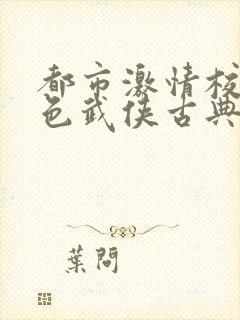 都市激情校
色武侠古典
葉問